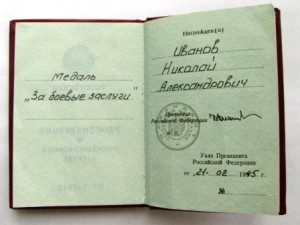 Медаль
„За боевые заслуги"
Награжден(а)
Иванов
Николай
Александрович
Президент
Российской Федерации
Указ Президента
Российской Федерации
от 21.02 1995 г.
№